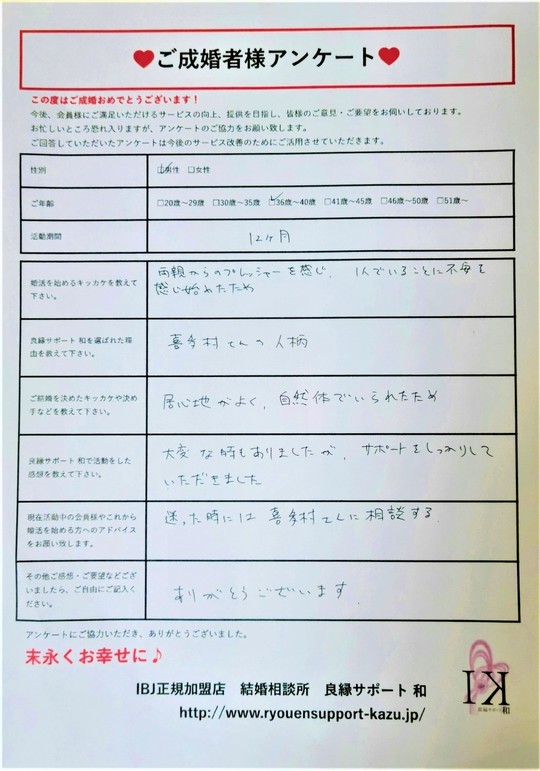 ♥ご成婚者様アンケート♥
この度はご成婚おめでとうございます！
今後、会員様にご満足いただけるサービスの向上、提供を目指し、皆様のご意見・ご要望をお伺いしております。
お忙しいところ恐れ入りますが、アンケートのご協力をお願い致します。
ご回答していただいたアンケートは今後のサービス改善のためにご活用させていただきます。
性別 ☑男性 □女性
ご年齢 □20歳～29歳 □30歳～35歳 ☑36歳～40歳 □41歳～45歳 □46歳～50歳 □51歳～
活動期間 12ヶ月
婚活を始めるキッカケを教えて
下さい。
両親からのプレッシャーを感じ、1人でいることに不安を
感じ始めたため
良縁サポート 和を選ばれた理
由を教えて下さい。
喜多村さんの人柄
ご結婚を決めたキッカケや決め
手などを教えて下さい。
居心地がよく、自然体でいられたため
良縁サポート 和で活動をした
感想を教えて下さい。
大変な時もありましたが、サポートをしっかりして
いただきました
現在活動中の会員様やこれから
婚活を始める方へのアドバイス
をお願い致します。
迷った時には喜多村さんに相談する
その他ご感想・ご要望などござ
いましたら、ご自由にご記入く
ださい。
ありがとうございます
アンケートにご協力いただき、ありがとうございました。
末永くお幸せに♪
IBJ正規加盟店 結婚相談所 良縁サポート 和
http://www.ryouensupport-kazu.jp/
KI
良縁サポート和